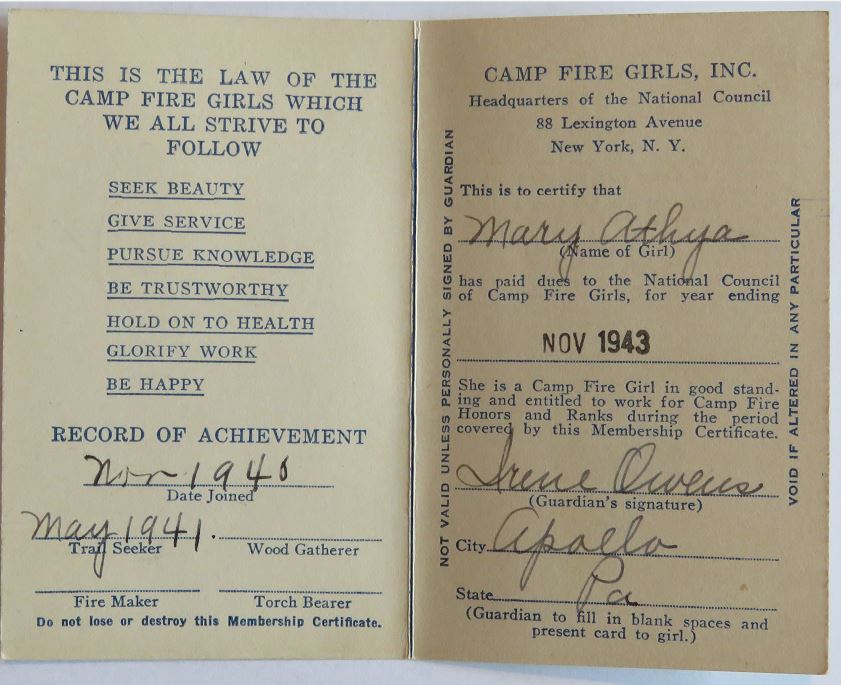 THIS IS THE LAW OF THE
CAMP FIRE GIRLS WHICH
WE ALL STRIVE TO
FOLLOW
SEEK BEAUTY
GIVE SERVICE
PURSUE KNOWLEDGE
BE TRUSTWORTHY
HOLD ON TO HEALTH
GLORIFY WORK
BE HAPPY
RECORD OF ACHIEVEMENT
Nov 1940
Date Joined
May 1941.
Trail Seeker Wood Gatherer
Fire Maker Torch Bearer
Do not lose or destroy this Membership Certificate.
NOT VALID UNLESS PERSONALLY SIGNED BY GUARDIAN
CAMP FIRE GIRLS, INC.
Headquarters of the National Council
88 Lexington Avenue
New York, N. Y.
This is to certify that
Mary Athya
(Name of Girl)
has paid dues to the National Council
of Camp Fire Girls, for year ending
NOV 1943
She is a Camp Fire Girl in good stand-
ing and entitled to work for Camp Fire
Honors and Ranks during the period
covered by this Membership Certificate.
Irene Owens
(Guardian's signature)
City Apollo
State Pa
(Guardian to fill in blank spaces and
present card to girl.)
VOID IF ALTERED IN ANY PARTICULAR